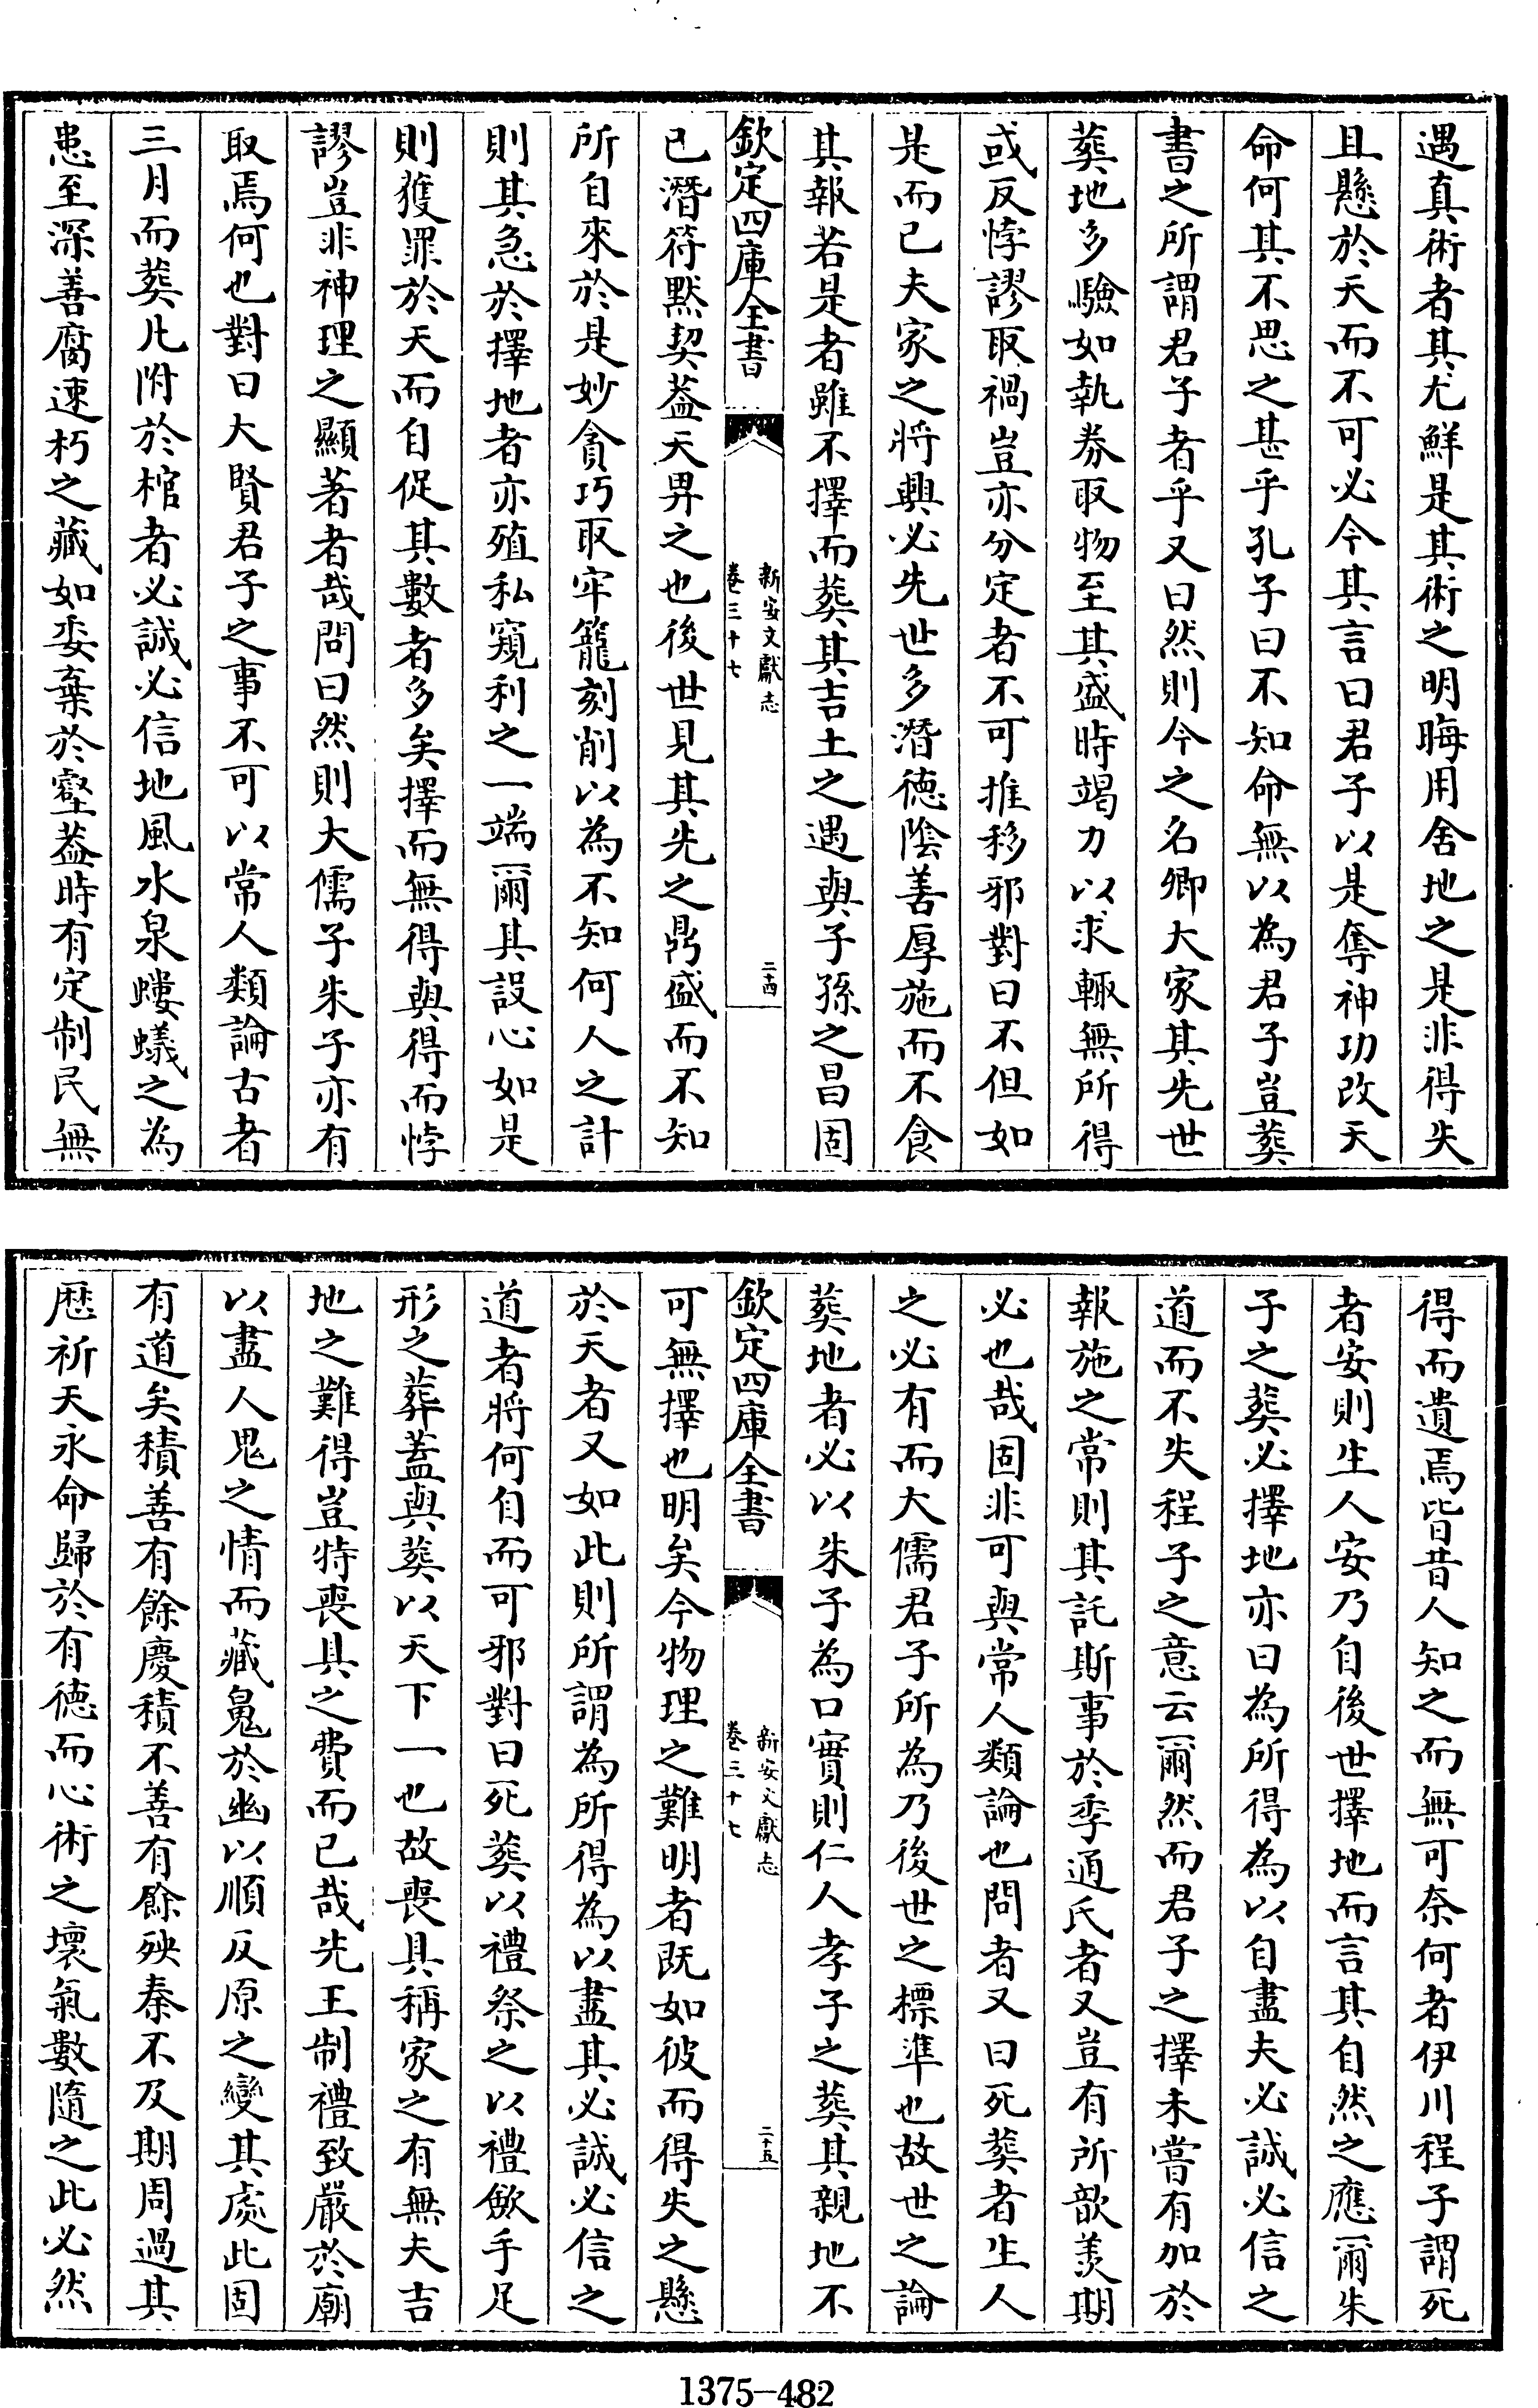 遇真術者其尤鮮是其術之明晦用舍地之是非得失
且懸於天而不可必今其言曰君子以是奪神功改天
命何其不思之甚乎孔子曰不知命無以為君子豈葬
書之所謂君子者乎又曰然則今之名卿大家其先世
葬地多驗如執券取物至其盛時竭力以求輒無所得
或反悖謬取禍豈亦分定者不可推移邪對曰不但如
是而已夫家之將興必先世多潛德陰善厚施而不食
其報若是者雖不擇而葬其吉土之遇與子孫之昌固
欽定四庫全書
新安文獻志
卷三十七
二十四
已潛符黙契葢天畀之也後世見其先之鼎盛而不知
所自來於是妙貪巧取牢籠刻削以為不知何人之計
則其急於擇地者亦殖私窺利之一端爾其設心如是
則獲罪於天而自促其數者多矣擇而無得與得而悖
謬豈非神理之顯著者哉問曰然則大儒子朱子亦有
取焉何也對曰大賢君子之事不可以常人類論古者
三月而葬凡附於棺者必誠必信地風水泉螻蟻之為
患至深善腐速朽之藏如委棄於壑葢時有定制民無
得而遺焉皆昔人知之而無可奈何者伊川程子謂死
者安則生人安乃自後世擇地而言其自然之應爾朱
子之葬必擇地亦曰為所得為以自盡夫必誠必信之
道而不失程子之意云爾然而君子之擇未嘗有加於
報施之常則其託斯事於季通氏者又豈有所歆羨期
必也哉固非可與常人類論也問者又曰死葬者生人
之必有而大儒君子所為乃後世之標準也故世之論
葬地者必以朱子為口實則仁人孝子之葬其親地不
欽定四庫全書
新安文獻志
卷三十七
二十五
可無擇也明矣今物理之難明者既如彼而得失之懸
於天者又如此則所謂為所得為以盡其必誠必信之
道者將何自而可邪對曰死葬以禮祭之以禮斂手足
形之葬蓋與葬以天下一也故喪具稱家之有無夫吉
地之難得豈特喪具之費而已哉先王制禮致嚴於廟
以盡人鬼之情而藏鬼於幽以順反原之變其處此固
有道矣積善有餘慶積不善有餘殃秦不及期周過其
歴祈天永命歸於有徳而心術之壞氣數隨之此必然
1375-482